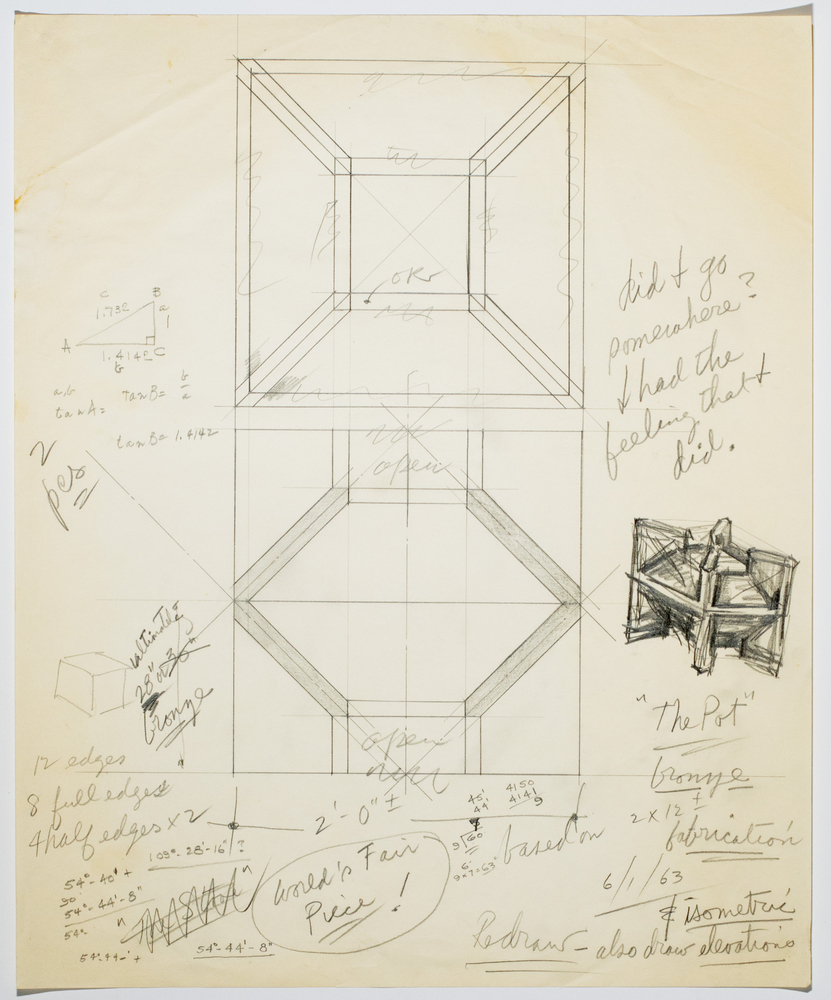 okr
did I go
somewhere?
I had the
feeling that I
did.
c B
1.732 a
1
A 1.4142 C
b
a,b
tan A= tan B= b/a
tan B= 1.4142
2
pcs
open
ultimate
28" or
bronze
"The Pot"
bronze
12 edges
8 full edges
4 half edges x 2
open
2'-0" ±
45'
44'
4150
4141
9
9 60
6
9x7=63"
based on
2 x 12 ±
fabrication
6/1/63
& isometric
Redraw - also draw elevations
109°-28'-16"?
54°-40' +
54°-44'-8"
54°
World's Fair
Piece!
54°-44'-8"
54°-44-' +